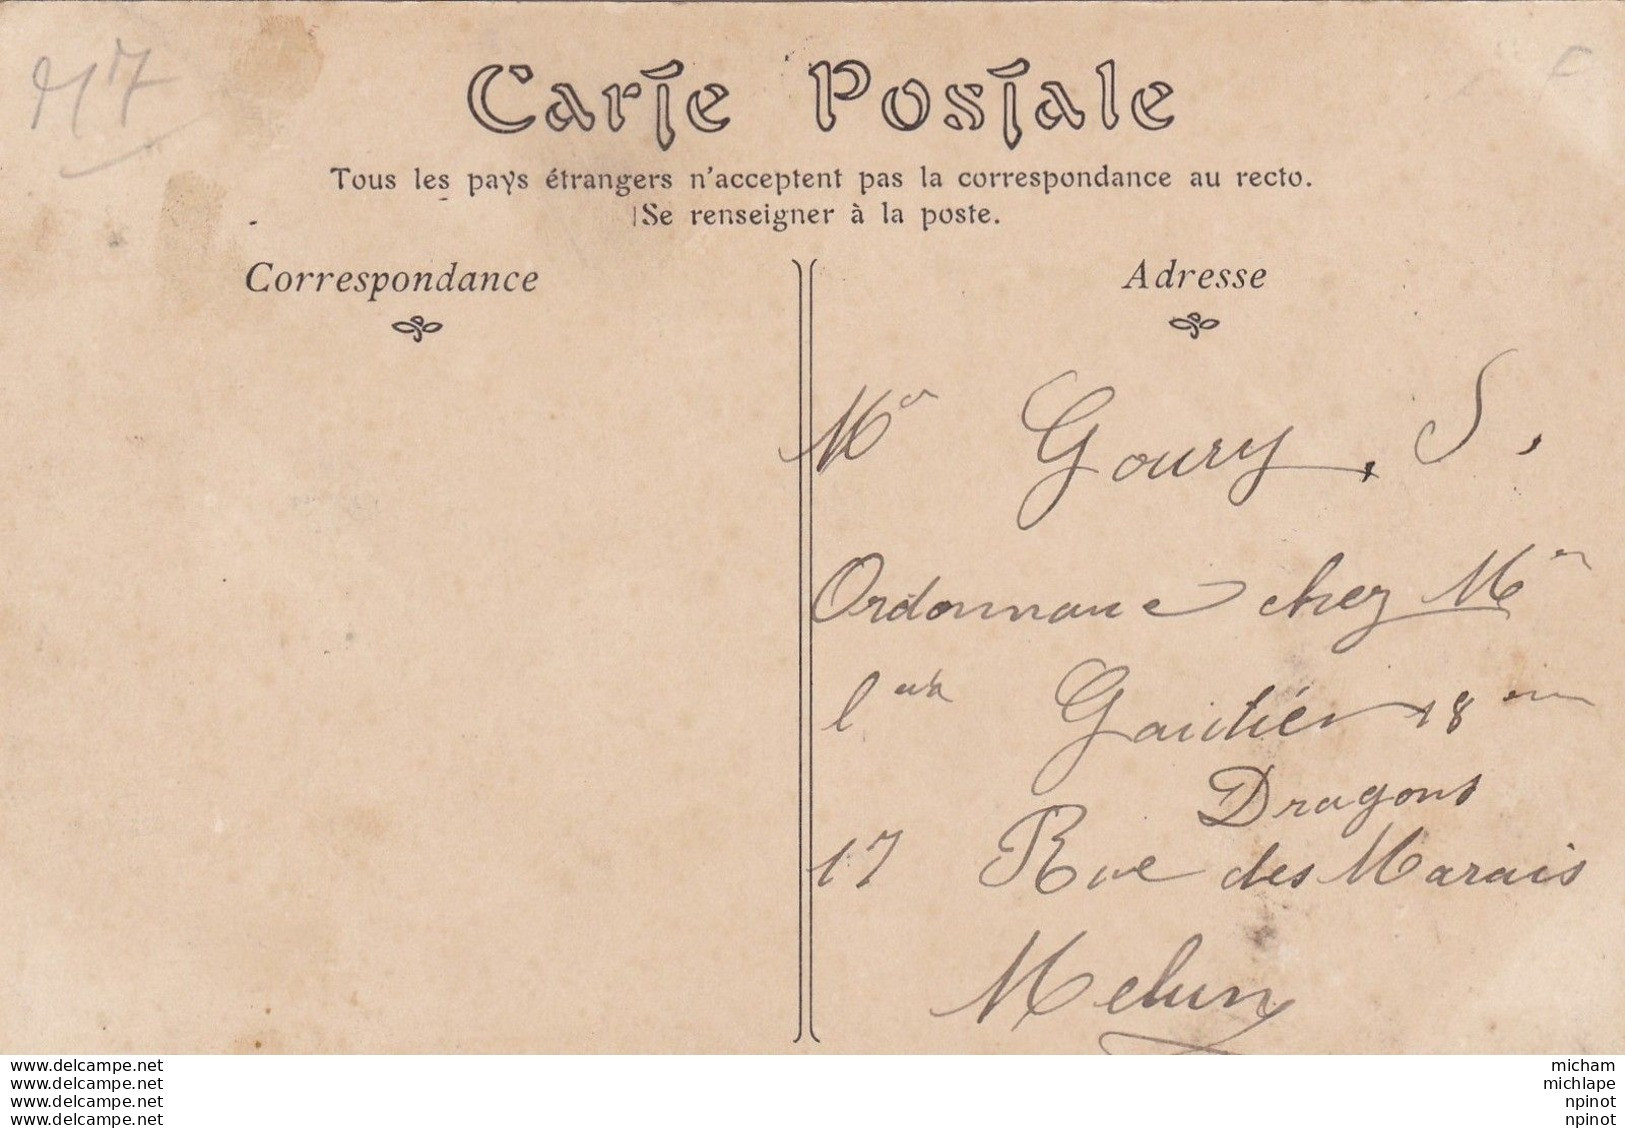 Carte Postale
Tous les pays étrangers n'acceptent pas la correspondance au recto.
Se renseigner à la poste.
Correspondance
Adresse
Mr Goury. S.
Ordonnance chez Mr
Gautier 18em
Dragons
17 Rue des Marais
Melun
www.delcampe.net
www.delcampe.net
www.delcampe.net
www.delcampe.net
micham
michlape
npinot
npinot